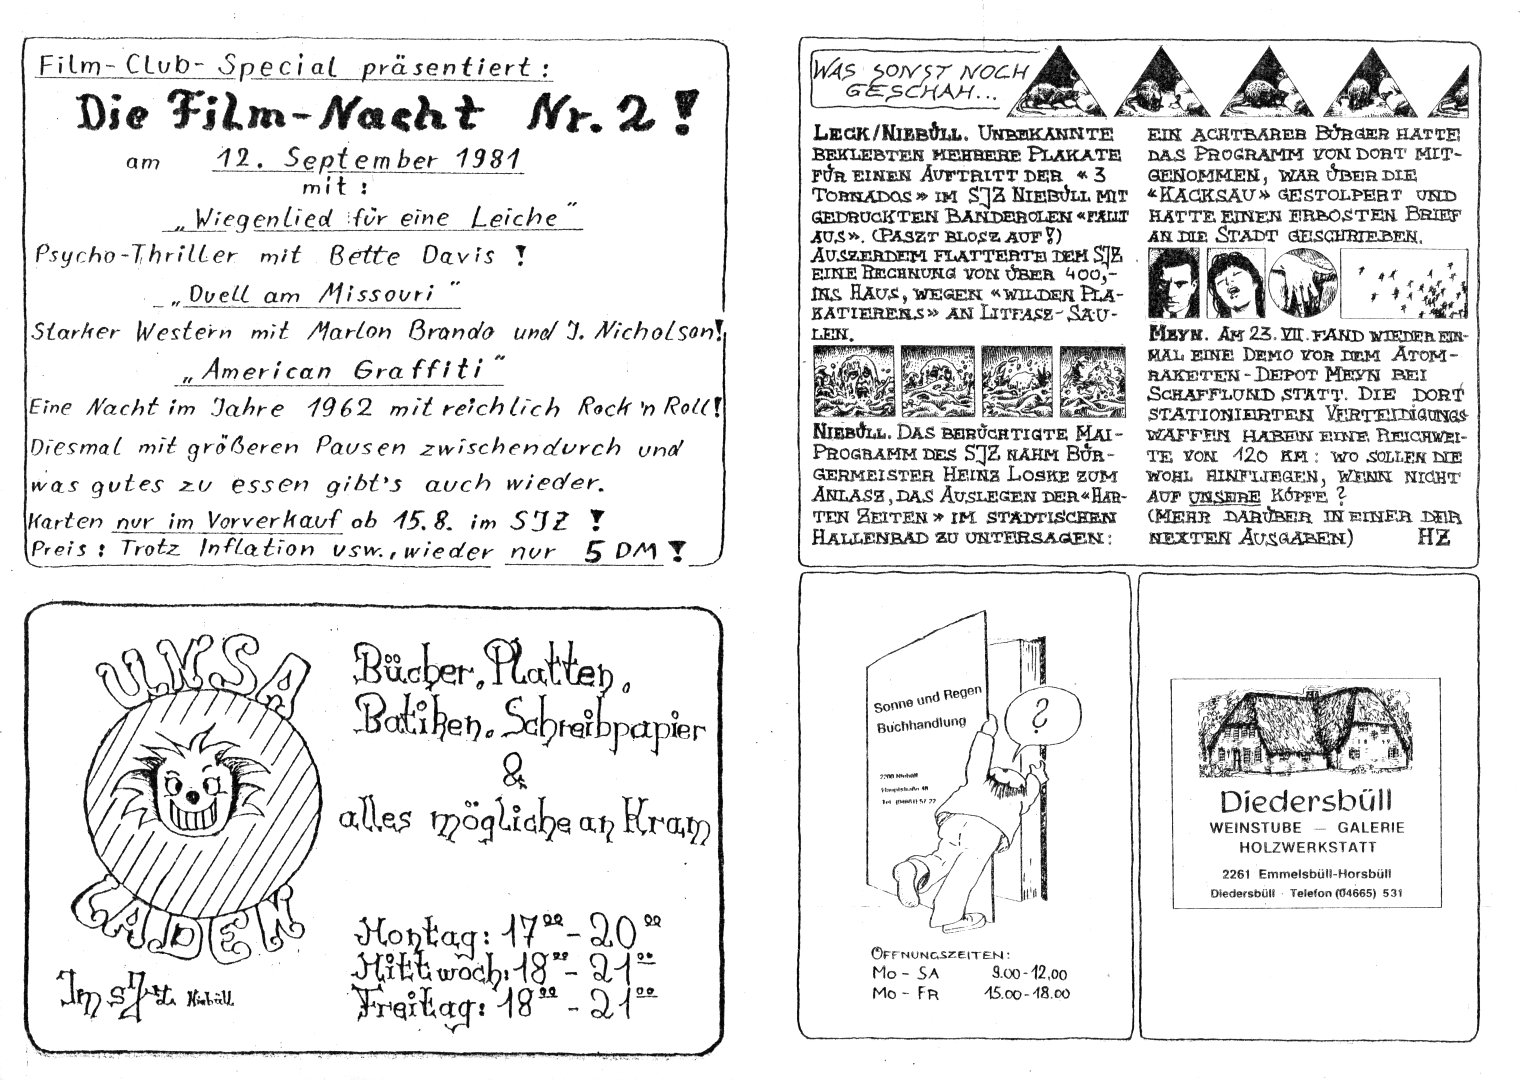 Film-Club-Special präsentiert:
Die Film-Nacht Nr. 2!
am 12. September 1981
mit:
„Wiegenlied für eine Leiche"
Psycho-Thriller mit Bette Davis !
„Duell am Missouri"
Starker Western mit Marlon Brando und J. Nicholson!
„American Graffiti"
Eine Nacht im Jahre 1962 mit reichlich Rock'n Roll!
Diesmal mit größeren Pausen zwischendurch und
was gutes zu essen gibt's auch wieder.
Karten nur im Vorverkauf ab 15.8. im SJZ !
Preis: Trotz Inflation usw., wieder nur 5 DM !
UNSA
LADEN
Im SJZ Niebüll
Bücher, Platten,
Batiken, Schreibpapier
&
alles mögliche an Kram
Montag: 17⁰⁰-20⁰⁰
Mittwoch: 18⁰⁰-21⁰⁰
Freitag: 18⁰⁰-21⁰⁰
WAS SONST NOCH
GESCHAH...
LECK/NIEBÜLL. UNBEKANNTE
BEKLEBTEN MEHRERE PLAKATE
FÜR EINEN AUFTRITT DER «3
TORNADOS» IM SJZ NIEBÜLL MIT
GEDRUCKTEN BANDEROLEN «FÄLLT
AUS». (PASZT BLOSZ AUF!)
AUSZERDEM FLATTERTE DEM SJZ
EINE RECHNUNG VON ÜBER 400,-
INS HAUS, WEGEN «WILDEN PLA-
KATIERENS» AN LITFASZ-SÄU-
LEN.
NIEBÜLL. DAS BERÜCHTIGTE MAI-
PROGRAMM DES SJZ NAHM BÜR-
GERMEISTER HEINZ LOSKE ZUM
ANLASZ, DAS AUSLEGEN DER «HAR-
TEN ZEITEN» IM STÄDTISCHEN
HALLENBAD ZU UNTERSAGEN:
EIN ACHTBARER BÜRGER HATTE
DAS PROGRAMM VON DORT MIT-
GENOMMEN, WAR ÜBER DIE
«KACKSAU» GESTOLPERT UND
HATTE EINEN ERBOSTEN BRIEF
AN DIE STADT GESCHRIEBEN.
MEYN. AM 23. VII. FAND WIEDER EIN-
MAL EINE DEMO VOR DEM ATOM-
RAKETEN-DEPOT MEYN BEI
SCHAFFLUND STATT. DIE DORT
STATIONIERTEN VERTEIDIGUNGS
WAFFEN HABEN EINE REICHWEI-
TE VON 120 KM: WO SOLLEN DIE
WOHL HINFLIEGEN, WENN NICHT
AUF UNSERE KÖPFE ?
(MEHR DARÜBER IN EINER DER
NEXTEN AUSGABEN) HZ
Sonne und Regen
Buchhandlung
2260 Niebüll
Hauptstraße 48
Tel. (04661) 57 22
?
ÖFFNUNGSZEITEN:
MO - SA 9.00-12.00
MO - FR 15.00-18.00
Diedersbüll
WEINSTUBE — GALERIE
HOLZWERKSTATT
2261 Emmelsbüll-Horsbüll
Diedersbüll · Telefon (04665) 531